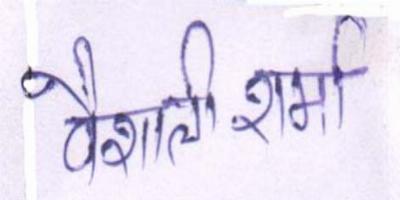 वैशाली शर्मा